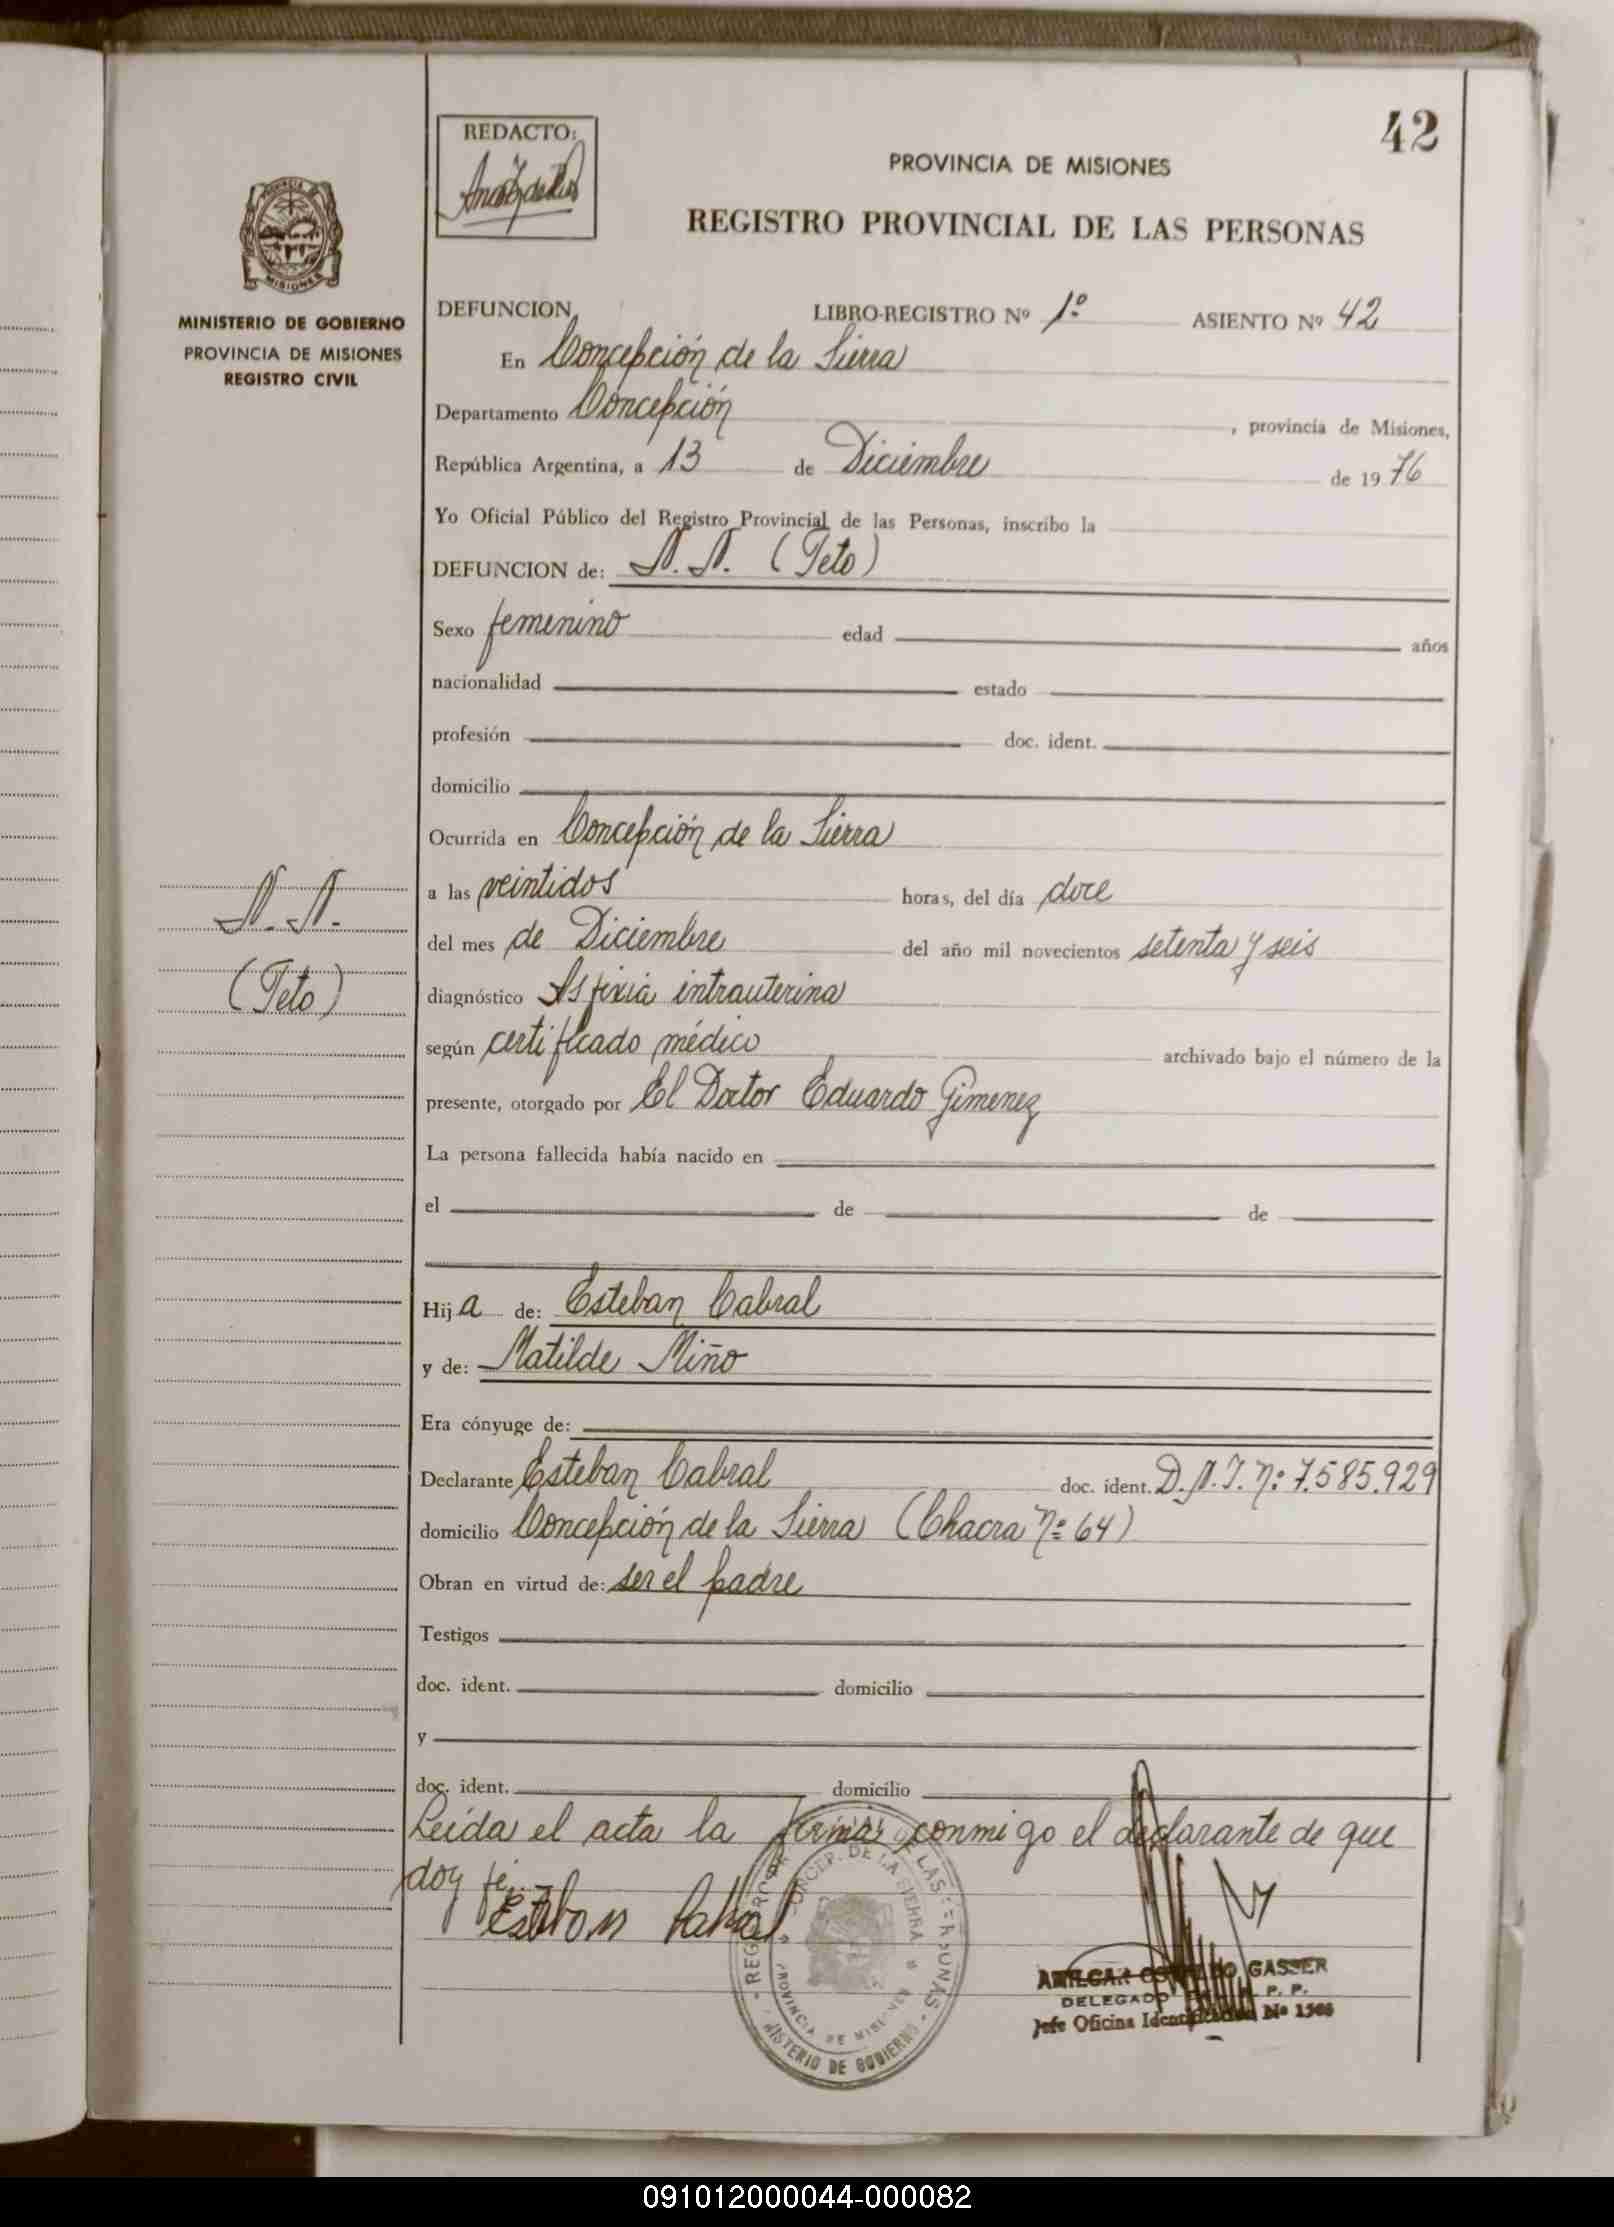 42
REDACTO:
PROVINCIA DE MISIONES
REGISTRO PROVINCIAL DE LAS PERSONAS
MISIONES
MINISTERIO DE GOBIERNO
PROVINCIA DE MISIONES
REGISTRO CIVIL
DEFUNCION LIBRO-REGISTRO Nº 1º ASIENTO Nº 42
En Concepción de la Sierra
Departamento Concepción , provincia de Misiones,
República Argentina, a 13 de Diciembre de 1976
Yo Oficial Público del Registro Provincial de las Personas, inscribo la
DEFUNCION de: N.N. (Feto)
Sexo femenino edad años
nacionalidad estado
profesión doc. ident.
domicilio
Ocurrida en Concepción de la Sierra
a las veintidos horas, del día doce
del mes de Diciembre del año mil novecientos setenta y seis
diagnóstico Asfixia intrauterina
según certificado médico archivado bajo el número de la
presente, otorgado por El Doctor Eduardo Gimenez
La persona fallecida había nacido en
el de de
Hija de: Esteban Cabral
y de: Matilde Miño
Era cónyuge de:
Declarante Esteban Cabral doc. ident. D.N.I. Nº 7.585.929
domicilio Concepción de la Sierra (Chacra Nº 64)
Obran en virtud de: ser el padre
Testigos
doc. ident. domicilio
y
doc. ident. domicilio
Leída el acta la firma conmigo el declarante de que
doy fé.
Esteban Cabral
N.N.
(Feto)
REGISTRO PROVINCIAL DE LAS PERSONAS
CONCEP. DE LA SIERRA
PROVINCIA DE MISIONES
MINISTERIO DE GOBIERNO
GASSER
DELEGADO P. P.
Jefe Oficina Identificación Nº 1566
091012000044-000082